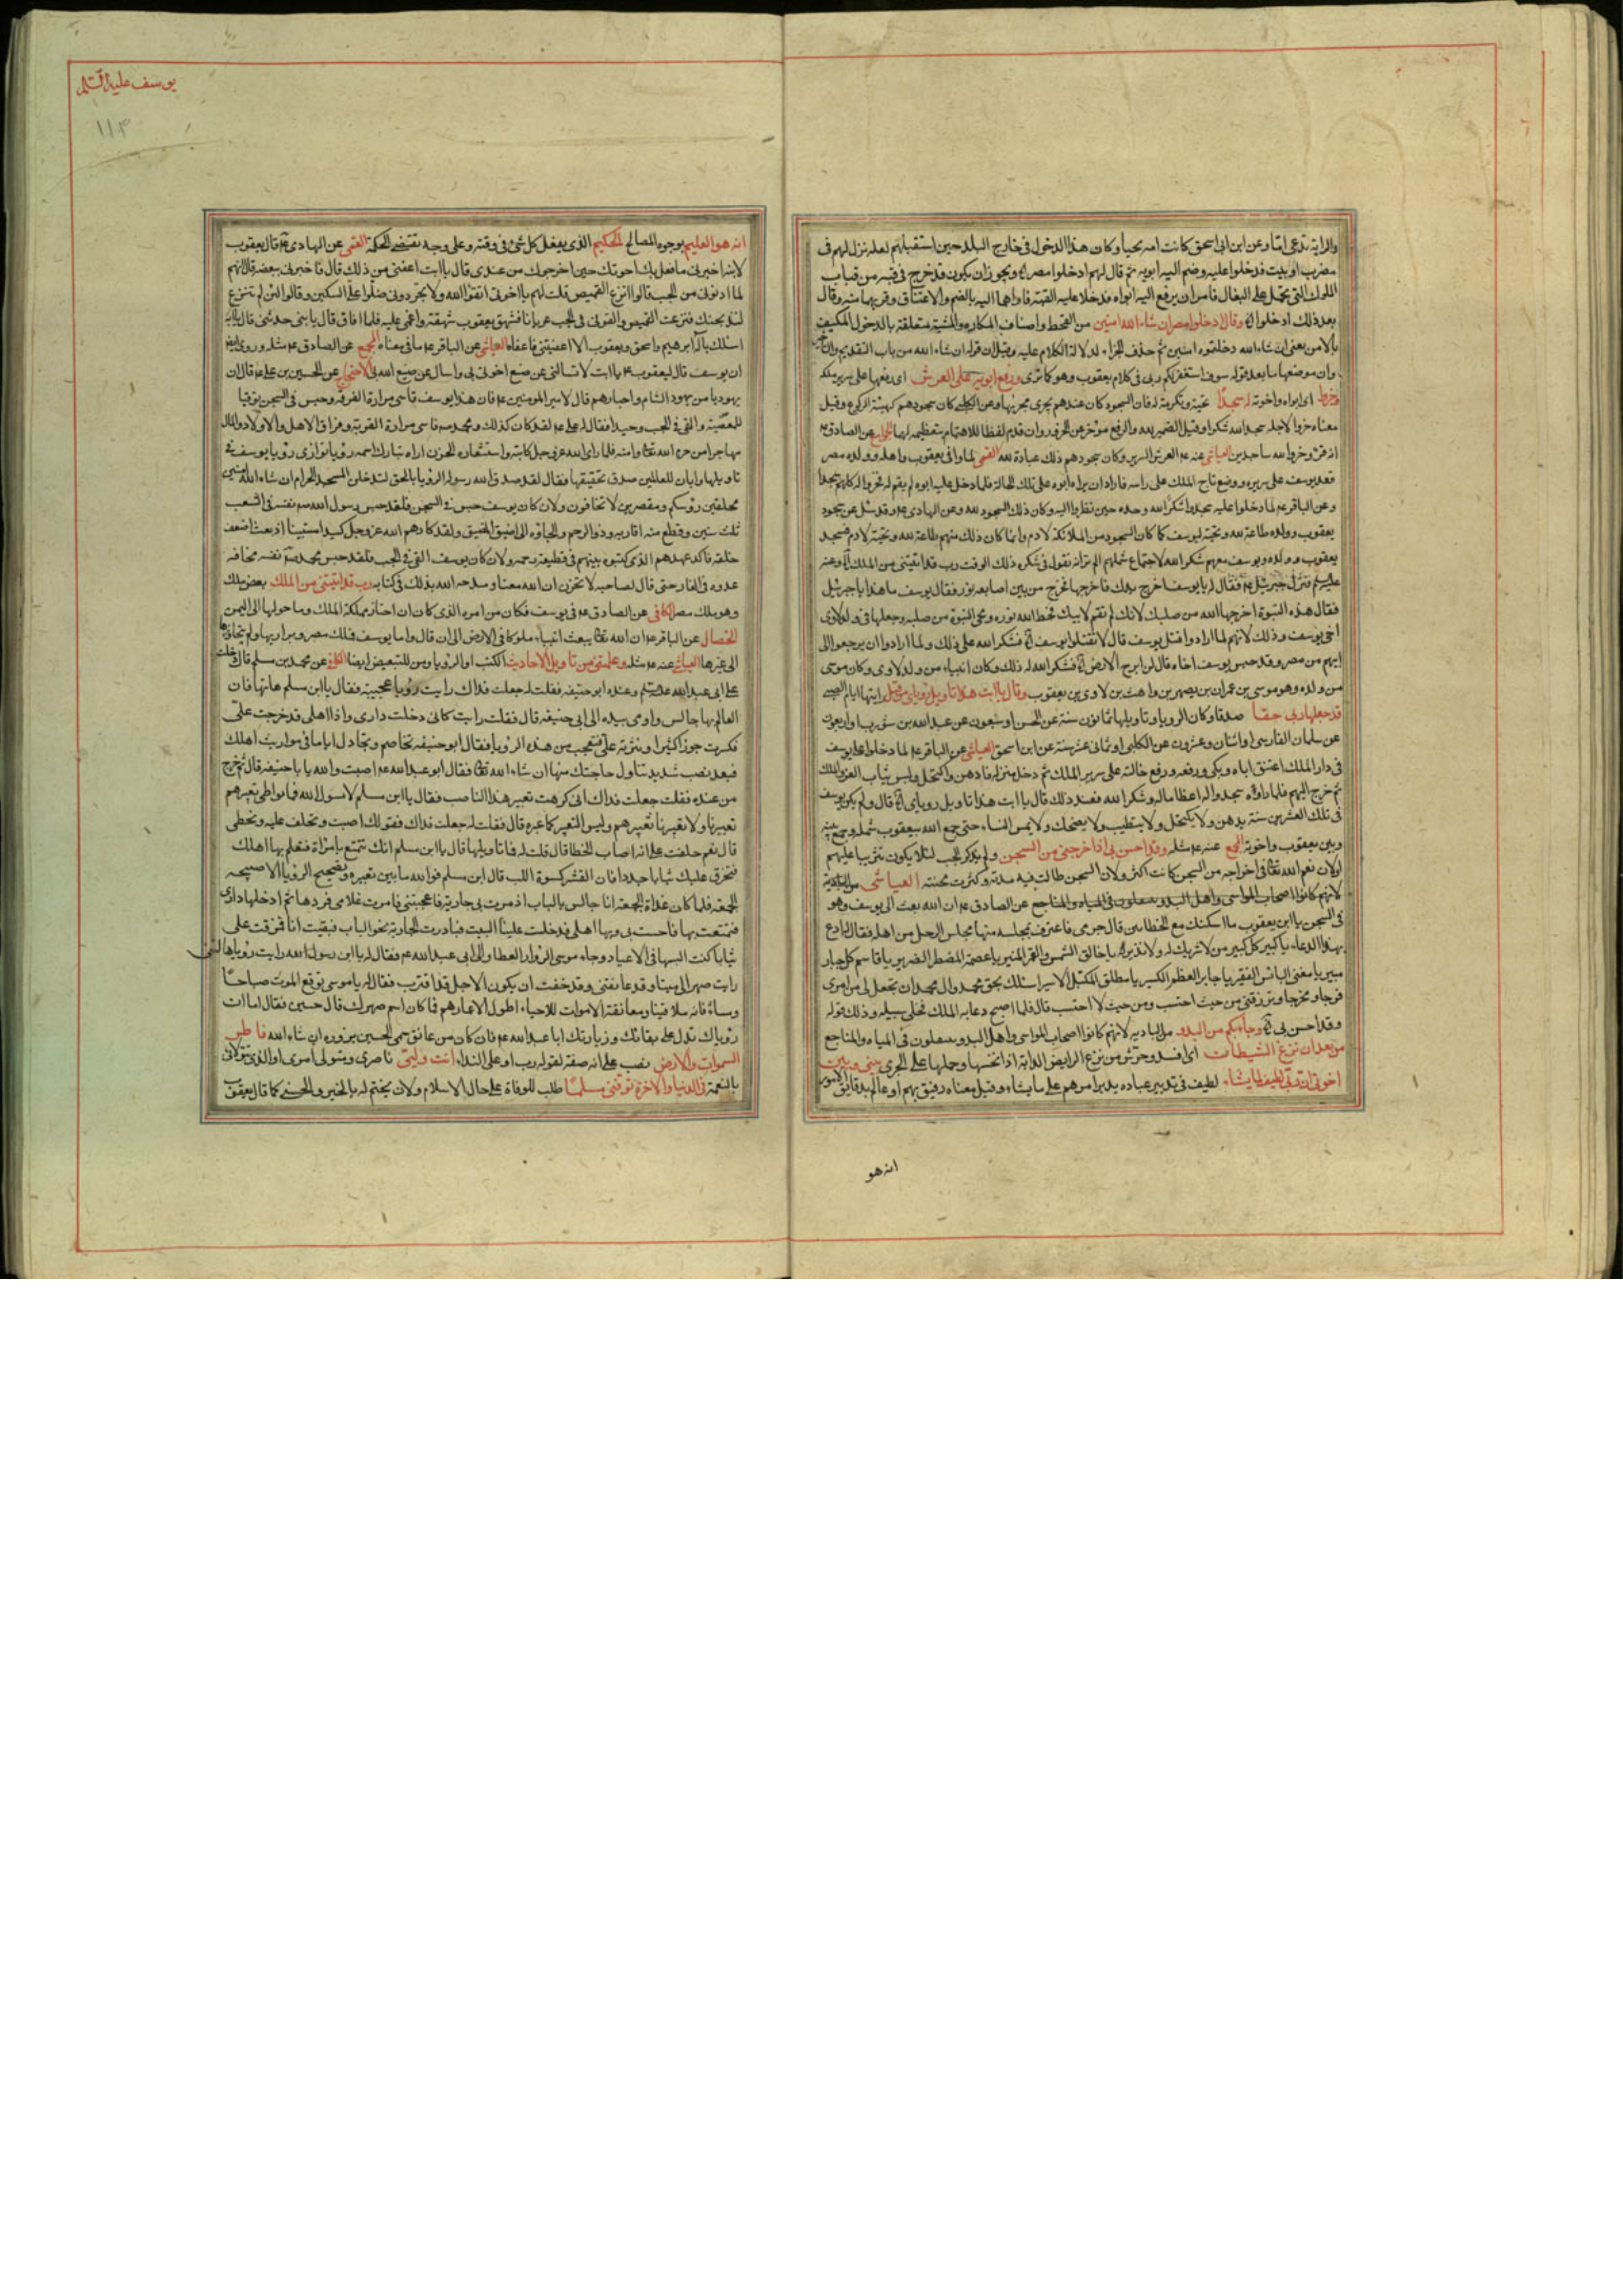 والرابة تدعى اما وعن ابن ابى اسحق كانت امه يحيا وكان هذا الدخول فى خارج البلد حين استقبلهم لعله نزل لهم فى
مضرب او بيت فدخلوا عليه وضم اليه ابويه ثم قال لهم ادخلوا مصر ويجوز ان يكون قد خرج فى قبة من قباب
الملوك التى تحمل على البغال فامر ان يرفع اليه ابواه فدخلا عليه القبة فاواهما اليه بالضم والاعتناق وقربهما منه وقال
بعد ذلك ادخلوا وقال ادخلوا مصر ان شاء الله امنين من القحط واصناف المكاره والمشية متعلقة بالدخول المكيف
بالامن يعنى ان شاء الله دخلتموه امنين ثم حذف الجزاء لدلالة الكلام عليه وقيل ان قوله ان شاء الله من باب التقديم
وان موضعها ما بعد قوله سوف استغفر لكم ربى فى كلام يعقوب وهو كما ترى ورفع ابويه على العرش اى رفعهما على سرير ملكه
وخروا اى ابواه واخوته له سجدا تحية وتكرمة له فان السجود كان عندهم يجرى مجريها وعن الكلبى كان سجودهم كهيئة الركوع وقيل
معناه خروا لاجله سجدا لله شكرا وقيل الضمير لله والرفع مؤخر عن الخرور وان قدم لفظا للاهتمام بتعظيمه لهما الجوامع عن الصادق
انه قرئ وخروا لله ساجدين العياشى عنه ع العرش السرير وكان سجودهم ذلك عبادة لله القمى لما وافى يعقوب واهله وولده مصر
قعد يوسف على سريره ووضع تاج الملك على راسه فاراد ان يراه ابوه على تلك الحالة فلما دخل عليه ابوه لم يقم له فخروا له كلهم سجدا
وعن الباقر ع لما دخلوا عليه سجدوا شكرا لله وحده حين نظروا اليه وكان ذلك السجود لله وعن الهادى ع وقد سئل عن سجود
يعقوب وولده طاعة لله وتحية ليوسف كما كان السجود من الملائكة لادم وانما كان ذلك منهم طاعة لله وتحية لادم فسجد
يعقوب وولده ويوسف معهم شكرا لله لاجتماع شملهم الم تر انه يقول فى شكره ذلك الوقت رب قد اتيتنى من الملك
فنزل جبرئيل فقال له يا يوسف اخرج يدك فاخرجها فخرج من بين اصابعه نور فقال يوسف ما هذا يا جبرئيل
فقال هذه النبوة اخرجها الله من صلبك لانك لم تقم لابيك فحط الله نوره ومحى النبوة من صلبه وجعلها فى ولد لاوى
اخى يوسف وذلك لانهم لما ارادوا قتل يوسف قال لا تقتلوا يوسف فشكر الله على ذلك ولما ارادوا ان يرجعوا الى
ابيهم من مصر وقد حبس يوسف اخاه قال لن ابرح الارض فشكر الله له ذلك وكان انبياء من ولد لاوى وكان موسى
من ولده وهو موسى بن عمران بن يصهر بن واهث بن لاوى بن يعقوب وقال يا ابت هذا تاويل رؤياى من قبل
قد جعلها ربى حقا صدقا وكان الرؤيا وتاويلها ثمانون سنة عن الحسن او سبعون عن عبد الله بن واربعون
عن سلمان الفارسى او اثنان وعشرون عن الكلبى او ثمانى عشر سنة عن ابن اسحق العياشى عن الباقر ع لما دخلوا على يوسف
فى دار الملك اعتنق اباه وبكى ورفعه ورفع خالته على سرير الملك ثم دخل منزله فادهن واكتحل ولبس ثياب العز والملك
ثم خرج اليهم فلما راوه سجدوا له اعظاما له وشكرا لله فعند ذلك قال يا ابت هذا تاويل رؤياى قال ولم يكن يوسف
فى تلك العشرين سنة يدهن ولا يكتحل ولا يتطيب ولا يضحك ولا يمس النساء حتى جمع الله بيعقوب شمله وجمع بينه
وبين يعقوب واخوته المجمع عنه ع مثله وقد احسن بى اذ اخرجنى من السجن ولم يذكر الجب لئلا يكون تثريبا عليهم
اولان نعم الله تعالى فى اخراجه من السجن كانت اكثر ولان السجن طالت فيه مدته وكثرت محنته العياشى
لانهم كانوا اصحاب المواشى واهل البدو ينتقلون فى المياه والمناجع عن الصادق ع ان الله بعث الى يوسف وهو
فى السجن يا ابن يعقوب ما اسكنك مع الخطائين قال جرمى فاعترف بمجلسه منها مجلس الرجل من اهله فقال له ادع
بهذا الدعاء يا كبير كل كبير يا من لا شريك له ولا وزير يا خالق الشمس والقمر المنير يا عصمة المضطر الضرير يا قاصم كل جبار
مبير يا مغنى البائس الفقير يا جابر العظم الكسير يا مطلق المكبل الاسير اسئلك بحق محمد وال محمد ان تجعل لى من امرى
فرجا ومخرجا وترزقنى من حيث احتسب ومن حيث لا احتسب قال فلما اصبح دعا به الملك فخلى سبيله وذلك قوله
وقد احسن بى وجاء بكم من البدو من البادية لانهم كانوا اصحاب المواشى واهل البدو ينتقلون فى المياه والمناجع
من بعد ان نزغ الشيطان اى افسد وحرش من نزغ الرايض الدابة اذا نخسها وحملها على الجرى بينى وبين
اخوتى ان ربى لطيف لما يشاء لطيف فى تدبير عباده يدبر امرهم على ما يشاء وقيل معناه رفيق بهم او عالم بدقائق الامور
انه هو
يوسف عليه السلم
١١٣
انه هو العليم بوجوه المصالح الحكيم الذى يفعل كل شئ فى وقته وعلى وجه تقتضى الحكمة القمى عن الهادى ع قال يعقوب
لابنه اخبرنى ما فعل بك اخوتك حين اخرجوك من عندى قال يا ابت اعفنى من ذلك قال فاخبرنى ببعضه قال انهم
لما ادنونى من الجب قالوا انزع القميص فقلت لهم يا اخوتى اتقوا الله ولا تجردونى فسلوا على السكين وقالوا لئن لم تنزع
لنذبحنك فنزعت القميص والقونى فى الجب عريانا فشهق يعقوب شهقة واغمى عليه فلما افاق قال يا بنى حدثنى قال يا ابة
اسئلك باله ابرهيم واسحق ويعقوب الا اعفيتنى فاعفاه العياشى عن الباقر ع ما فى معناه المجمع عن الصادق ع مثله وروى
ان يوسف قال ليعقوب ع يا ابت لا تسالنى عن صنع اخوتى بى واسال عن صنع الله بى الاحتجاج عن الحسين بن على ع قال ان
يهوديا من يهود الشام واحبارهم قال لامير المومنين ع فان هذا يوسف قاسى مرارة الفرقة وحبس فى السجن توقيا
للمعصية والقى فى الجب وحيدا فقال له على ع لقد كان كذلك ومحمد ص قاسى مرارة الغربة وفراق الاهل والاولاد والمال
مهاجرا من حرم الله تعالى وامنه فلما راى الله عز وجل كابته واستشعاره الحزن اراه تبارك اسمه رؤيا توازى رؤيا يوسف فى
تاويلها وابان للعالمين صدق تحقيقها فقال لقد صدق الله رسوله الرؤيا بالحق لتدخلن المسجد الحرام ان شاء الله امنين
محلقين رؤسكم ومقصرين لا تخافون ولان كان يوسف حبس فى السجن فلقد حبس رسول الله ص نفسه فى الشعب
ثلث سنين وقطع منه اقاربه وذوا الرحم والجاؤه الى اضيق المضيق ولقد كادهم الله عز وجل كيدا مستبينا اذ بعث اضعف
خلقه فاكل عهدهم الذى كتبوه بينهم فى قطيعة رحمه ولان كان يوسف القى فى الجب فلقد حبس محمد ص نفسه مخافة
عدوه فى الغار حتى قال لصاحبه لا تحزن ان الله معنا ومدحه الله بذلك فى كتابه رب قد اتيتنى من الملك بعض الملك
وهو ملك مصر الكافى عن الصادق ع فى يوسف فكان من امره الذى كان ان اختار مملكة الملك وما حولها الى اليمن
الخصال عن الباقر ع ان الله تعالى يبعث انبياء ملوكا فى الارض الى ان قال واما يوسف فملك مصر وبراريها ولم يتجاوزها
الى غيرها العياشى عنه ع مثله وعلمتنى من تاويل الاحاديث الكتب او الرؤيا ومن للتبعيض ايضا الكافى عن محمد بن مسلم قال دخلت
على ابى عبد الله عليه السلم وعنده ابو حنيفه فقلت له جعلت فداك رايت رؤيا عجيبة فقال يا ابن مسلم هاتها فان
العالم بها جالس واومى بيده الى ابى حنيفه قال فقلت رايت كانى دخلت دارى واذا اهلى قد خرجت على
فكسرت جوزا كثيرا ونثرته على فتعجبت من هذه الرؤيا فقال ابو حنيفه تخاصم وتجادل اياما فى مواريث اهلك
فبعد نصب شديد تناول حاجتك منها ان شاء الله تعالى فقال ابو عبد الله ع اصبت والله يا با حنيفه قال ثم خرج
من عنده فقلت جعلت فداك انى كرهت تعبير هذا الناصب فقال يا ابن مسلم لا يسؤك الله فما يواطى تعبيرهم
تعبيرنا ولا تعبيرنا تعبيرهم وليس التعبير كما عبره قال فقلت له جعلت فداك فقولك اصبت وتحلف عليه وتخطى
قال نعم حلفت على انه اصاب الخطا قال قلت له فما تاويلها قال يا ابن مسلم انك تتمتع بامراة فتعلم بها اهلك
فتخرق عليك ثيابا جددا فان القشر كسوة اللب قال ابن مسلم فوالله ما بين تعبيره وتصحيح الرؤيا الا صبيحة
الجمعة فلما كان غداة الجمعة انا جالس بالباب اذ مرت بى جارية فاعجبتنى فامرت غلامى فردها ثم ادخلها دارى
فتمتعت بها فاحست بى وبها اهلى فدخلت علينا البيت فبادرت الجارية نحو الباب فبقيت انا فمزقت على
ثيابا كنت البسها فى الاعياد وجاء موسى الزوار العطار الى ابى عبد الله ع فقال له يا ابن رسول الله رايت رؤيا هالتنى
رايت صهرا لى ميتا وقد عانقنى وقد خفت ان يكون الاجل قد اقترب فقال له يا موسى توقع الموت صباحا
ومساء فانه ملاقينا ومعانقة الاموات للاحياء اطول لاعمارهم فما كان اسم صهرك قال حسين فقال اما ان
رؤياك تدل على بقائك وزيارتك ابا عبد الله ع فان كل من عانق سمى الحسين يزوره ان شاء الله فاطر
السموات والارض نصب على انه صفة لقوله رب او على النداء انت وليى ناصرى ومتولى امرى او الذى يتولانى
بالنعمة فى الدنيا والاخرة توفنى مسلما طلب للوفاة على حال الاسلام ولان يختم له بالخير والحسنى كما قال يعقوب